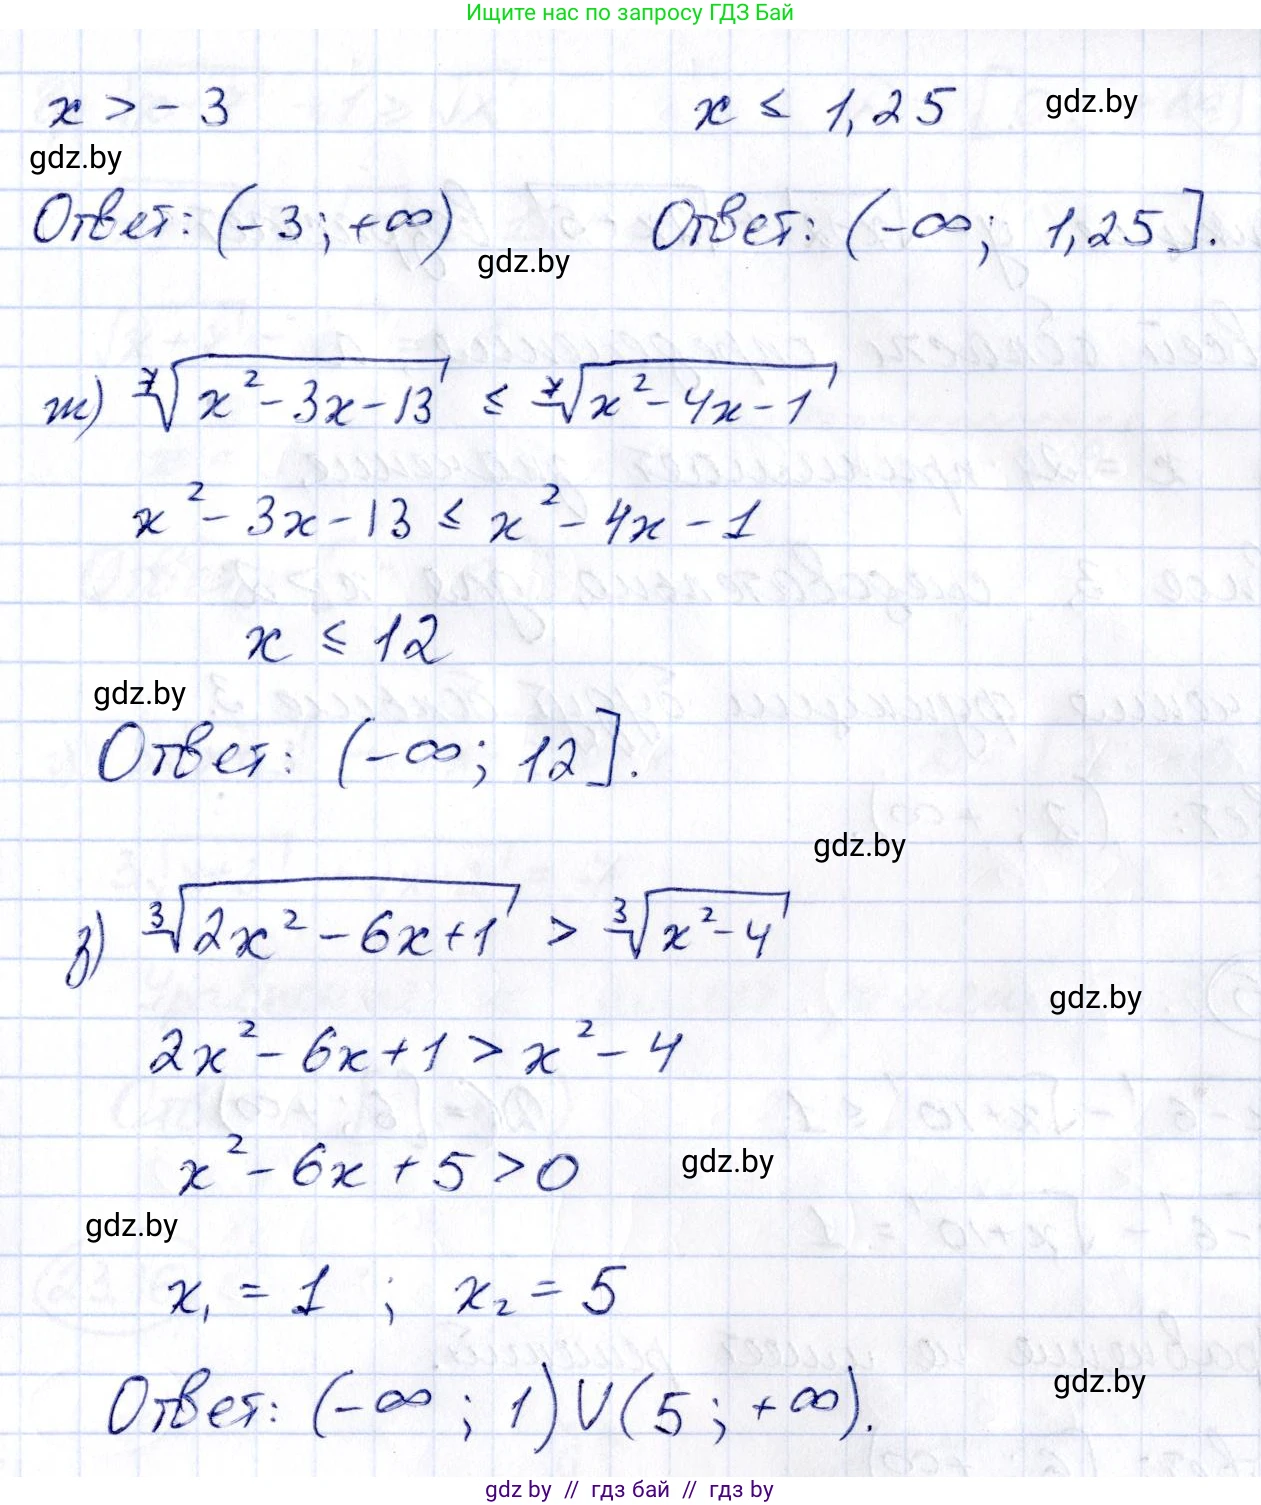 Ищите нас по запросу ГДЗ Бай
x > - 3
x ≤ 1,25
gdz.by
gdz.by
Ответ: (-3; +∞)
Ответ: (-∞; 1,25].
gdz.by
ж) ⁷√(x² - 3x - 13) ≤ ⁷√(x² - 4x - 1)
x² - 3x - 13 ≤ x² - 4x - 1
x ≤ 12
gdz.by
Ответ: (-∞; 12].
gdz.by
з) ³√(2x² - 6x + 1) > ³√(x² - 4)
gdz.by
2x² - 6x + 1 > x² - 4
x² - 6x + 5 > 0
gdz.by
gdz.by
x₁ = 1 ; x₂ = 5
gdz.by
Ответ: (-∞; 1) ∪ (5; +∞).
gdz.by // гдз бай // гдз by